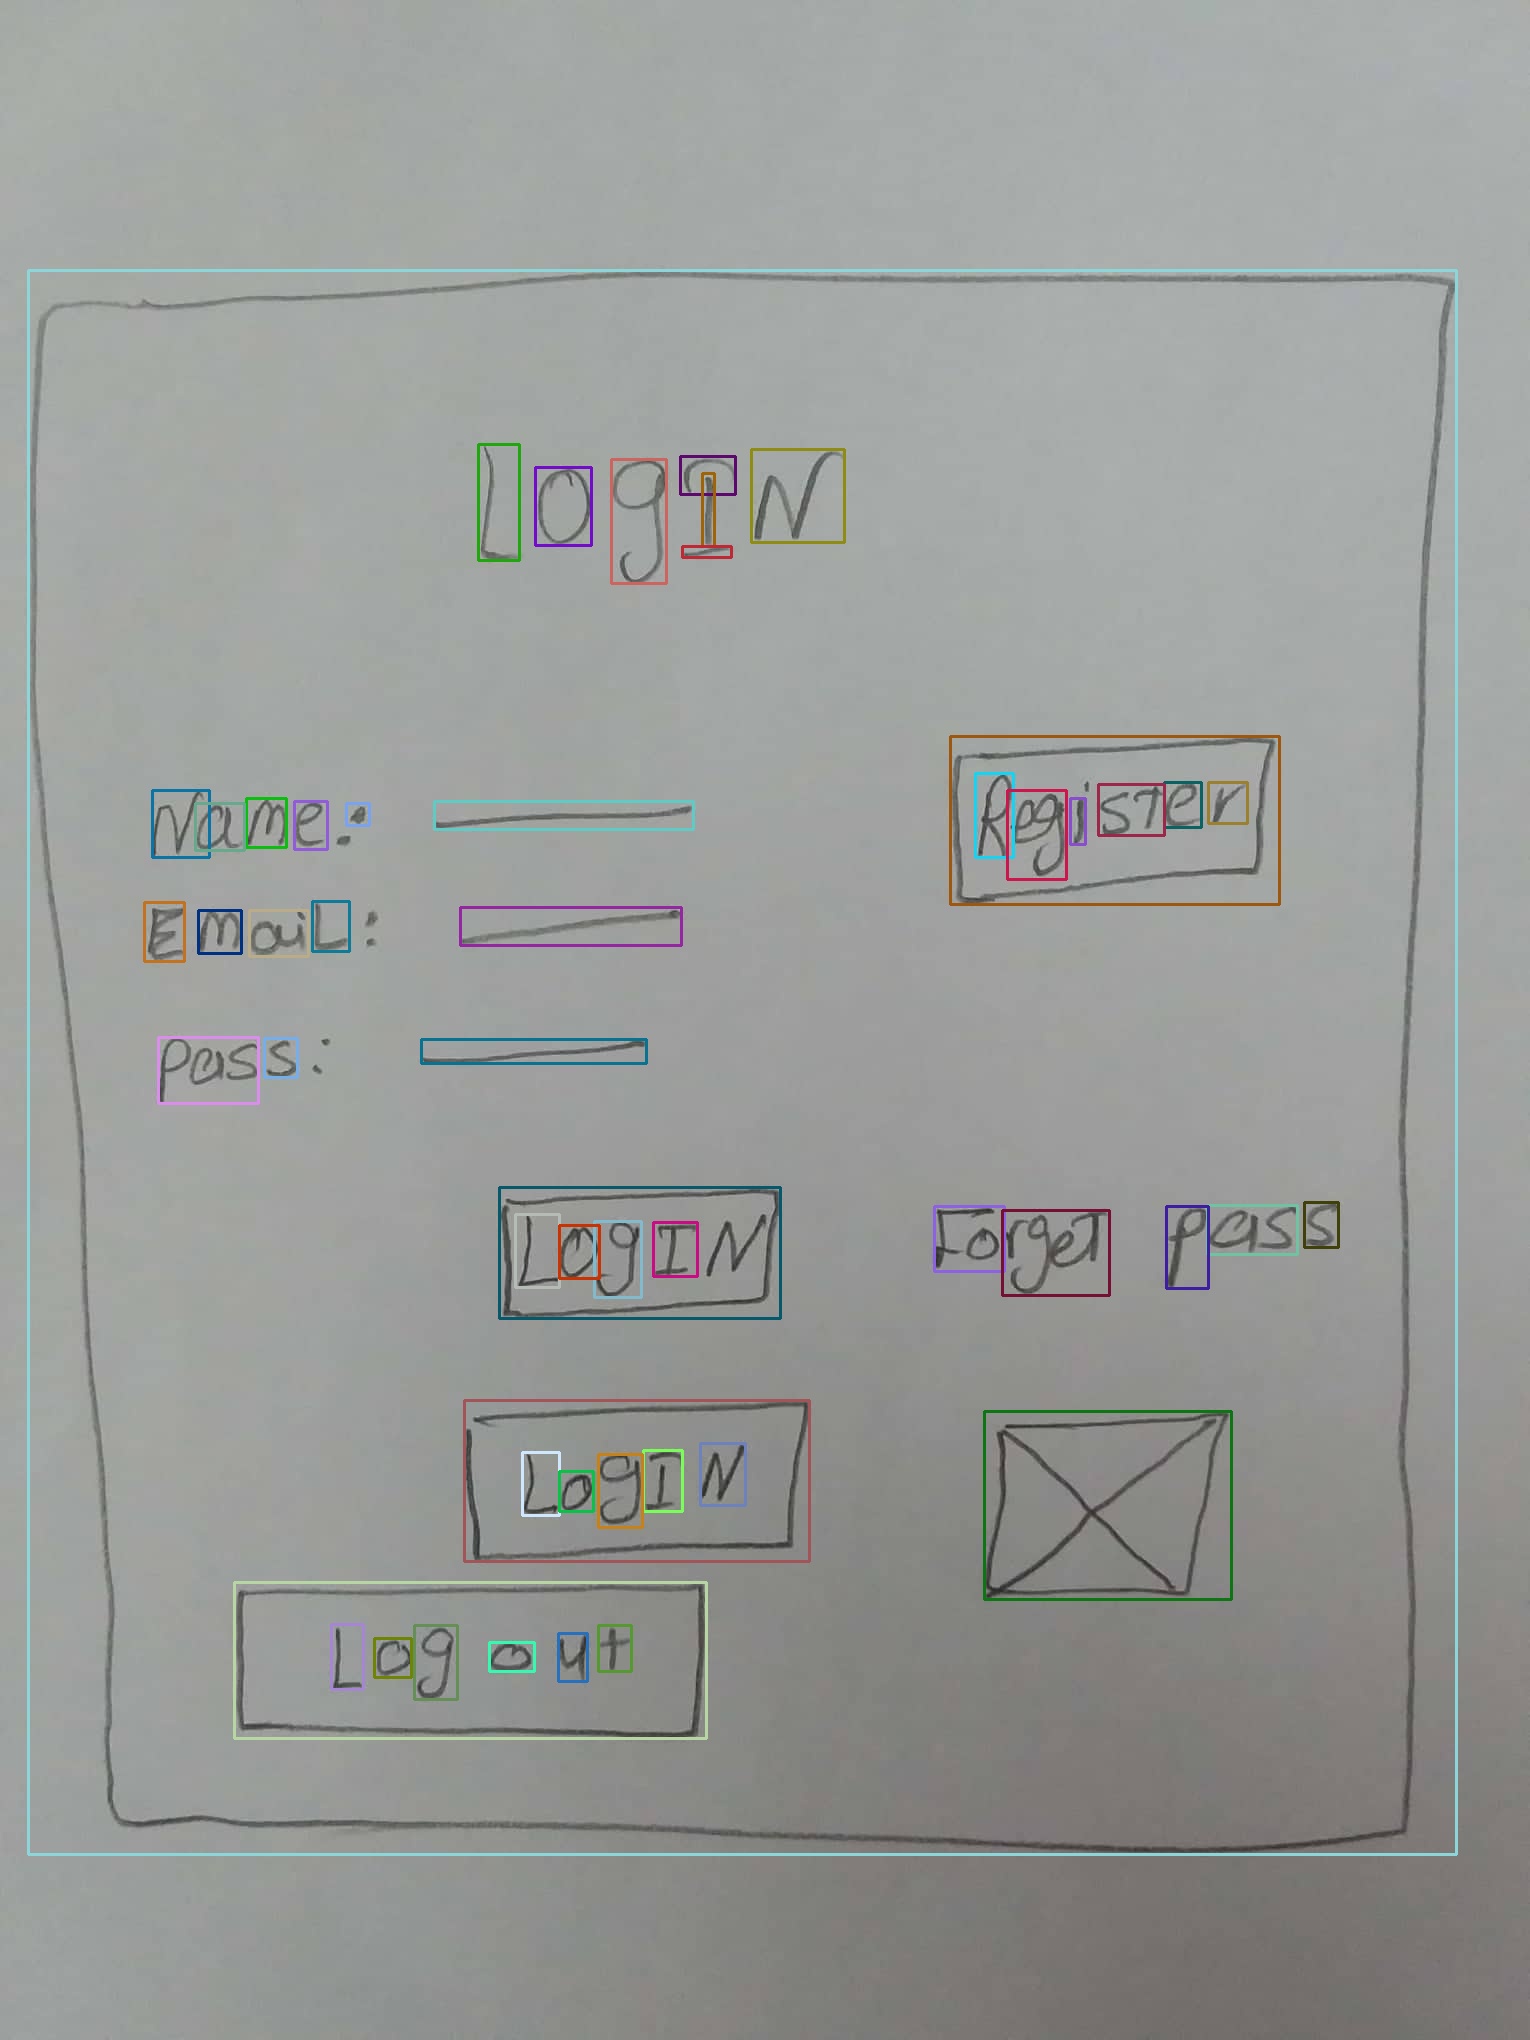 LogIN
Name:
Register
EmaiL:
pass:
LogIN
Forget pass
LogIN
Log out